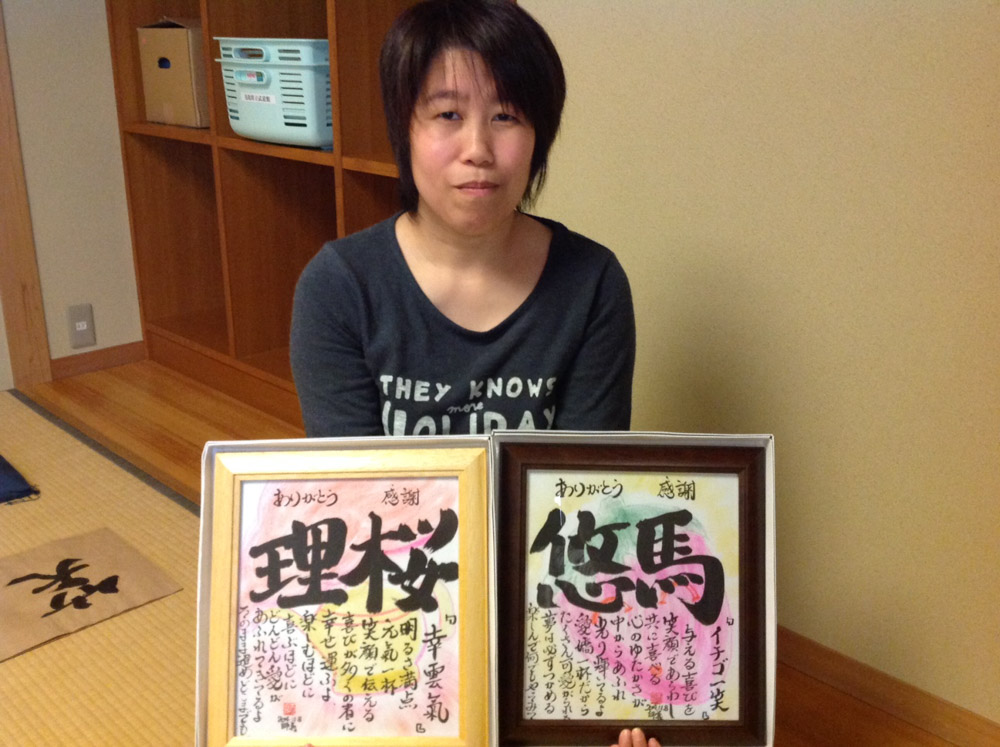 THEY KNOWS
more
HOLIDAY
ありがとう 感謝
理桜
「幸雲氣」
明るさ満点
元氣一杯
笑顔で伝える
喜びが多くの者に
幸せ運ぶよ
楽しむほどに
喜ぶほどに
どんどん愛が
あふれてきてるよ
ありがとう 感謝
悠馬
「イチゴ一笑」
与える喜びを
笑顔であらわし
共に喜べる
心のゆたかさが
中からあふれ
光り輝いてるよ
愛嬌一杯だから
たくさん可愛がられ
夢は必ずつかめる